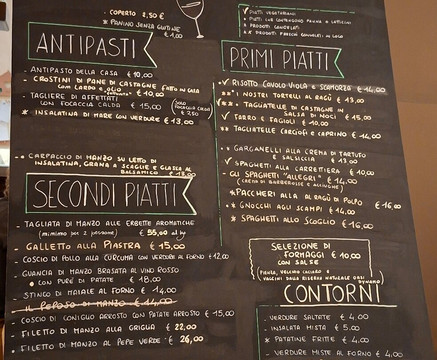 - COPERTO 2,50 €
* PANINO SENZA GLUTINE
€ 1,00
ANTIPASTI
- ANTIPASTO DELLA CASA € 10,00
- CROSTINI DI PANE DI CASTAGNE FATTO IN CASA
CON LARDO E € 10,00
- TAGLIERE DI AFFETTATI
CON FOCACCIA CALDA € 15,00
(SOLO FOCACCIA CALDA
€ 2,50)
* INSALATINA DI MARE CON VERDURE € 13,00
** CARPACCIO DI MANZO SU LETTO DI
INSALATINA, GRANA A SCAGLIE E GLASSA AL
BALSAMICO € 13,00
SECONDI PIATTI
- TAGLIATA DI MANZO ALLE ERBETTE AROMATICHE
(MINIMO PER 2 PERSONE) € 55,00 al kg
- GALLETTO ALLA PIASTRA € 15,00
- COSCIO DI POLLO ALLA CURCUMA CON VERDURE AL FORNO € 12,00
- GUANCIA DI MANZO BRASATA AL VINO ROSSO
CON PURÈ DI PATATE € 18,00
- STINCO DI MAIALE AL FORNO € 14,00
IL PEPOSO DI MANZO € 14,00
- COSCIO DI CONIGLIO ARROSTO CON PATATE ARROSTO € 15,00
- FILETTO DI MANZO ALLA GRIGLIA € 22,00
- FILETTO DI MANZO AL PEPE VERDE € 26,00
PIATTI VEGETARIANI
PIATTI CHE CONTENGONO PANNA O LATTICINI
* PRODOTTI CONGELATI
* PRODOTTI FRESCHI CONGELATI IN LOCO
PRIMI PIATTI
√ RISOTTO CAVOLO VIOLA E SCAMORZA € 14,00
** I NOSTRI TORTELLI AL RAGÙ € 13,00
** TAGLIATELLE DI CASTAGNE IN
SALSA DI NOCI € 15,00
√ FARRO E FAGIOLI € 10,00
** TAGLIATELLE CARCIOFI E CAPRINO € 14,00
** GARGANELLI ALLA CREMA DI TARTUFO
E SALSICCIA € 13,00
√ SPAGHETTI ALLA CARRETTIERA € 10,00
- GLI SPAGHETTI "ALLEGRI" € 14,00
(CREMA DI BARBEROSSE E ACCIUGHE)
* PACCHERI ALLA AL RAGÙ DI POLPO € 16,00
* GNOCCHI AGLI SCAMPI € 14,00
* SPAGHETTI ALLO SCOGLIO € 16,00
SELEZIONE DI
FORMAGGI € 10,00
CON SALSE
PIENZA, VECCHIO
VACCINI DALLA RISERVA NATURALE
CONTORNI
- VERDURE SALTATE € 4,00
- INSALATA MISTA € 5,00
* PATATINE FRITTE € 4,00
- VERDURE MISTE AL FORNO € 4,00